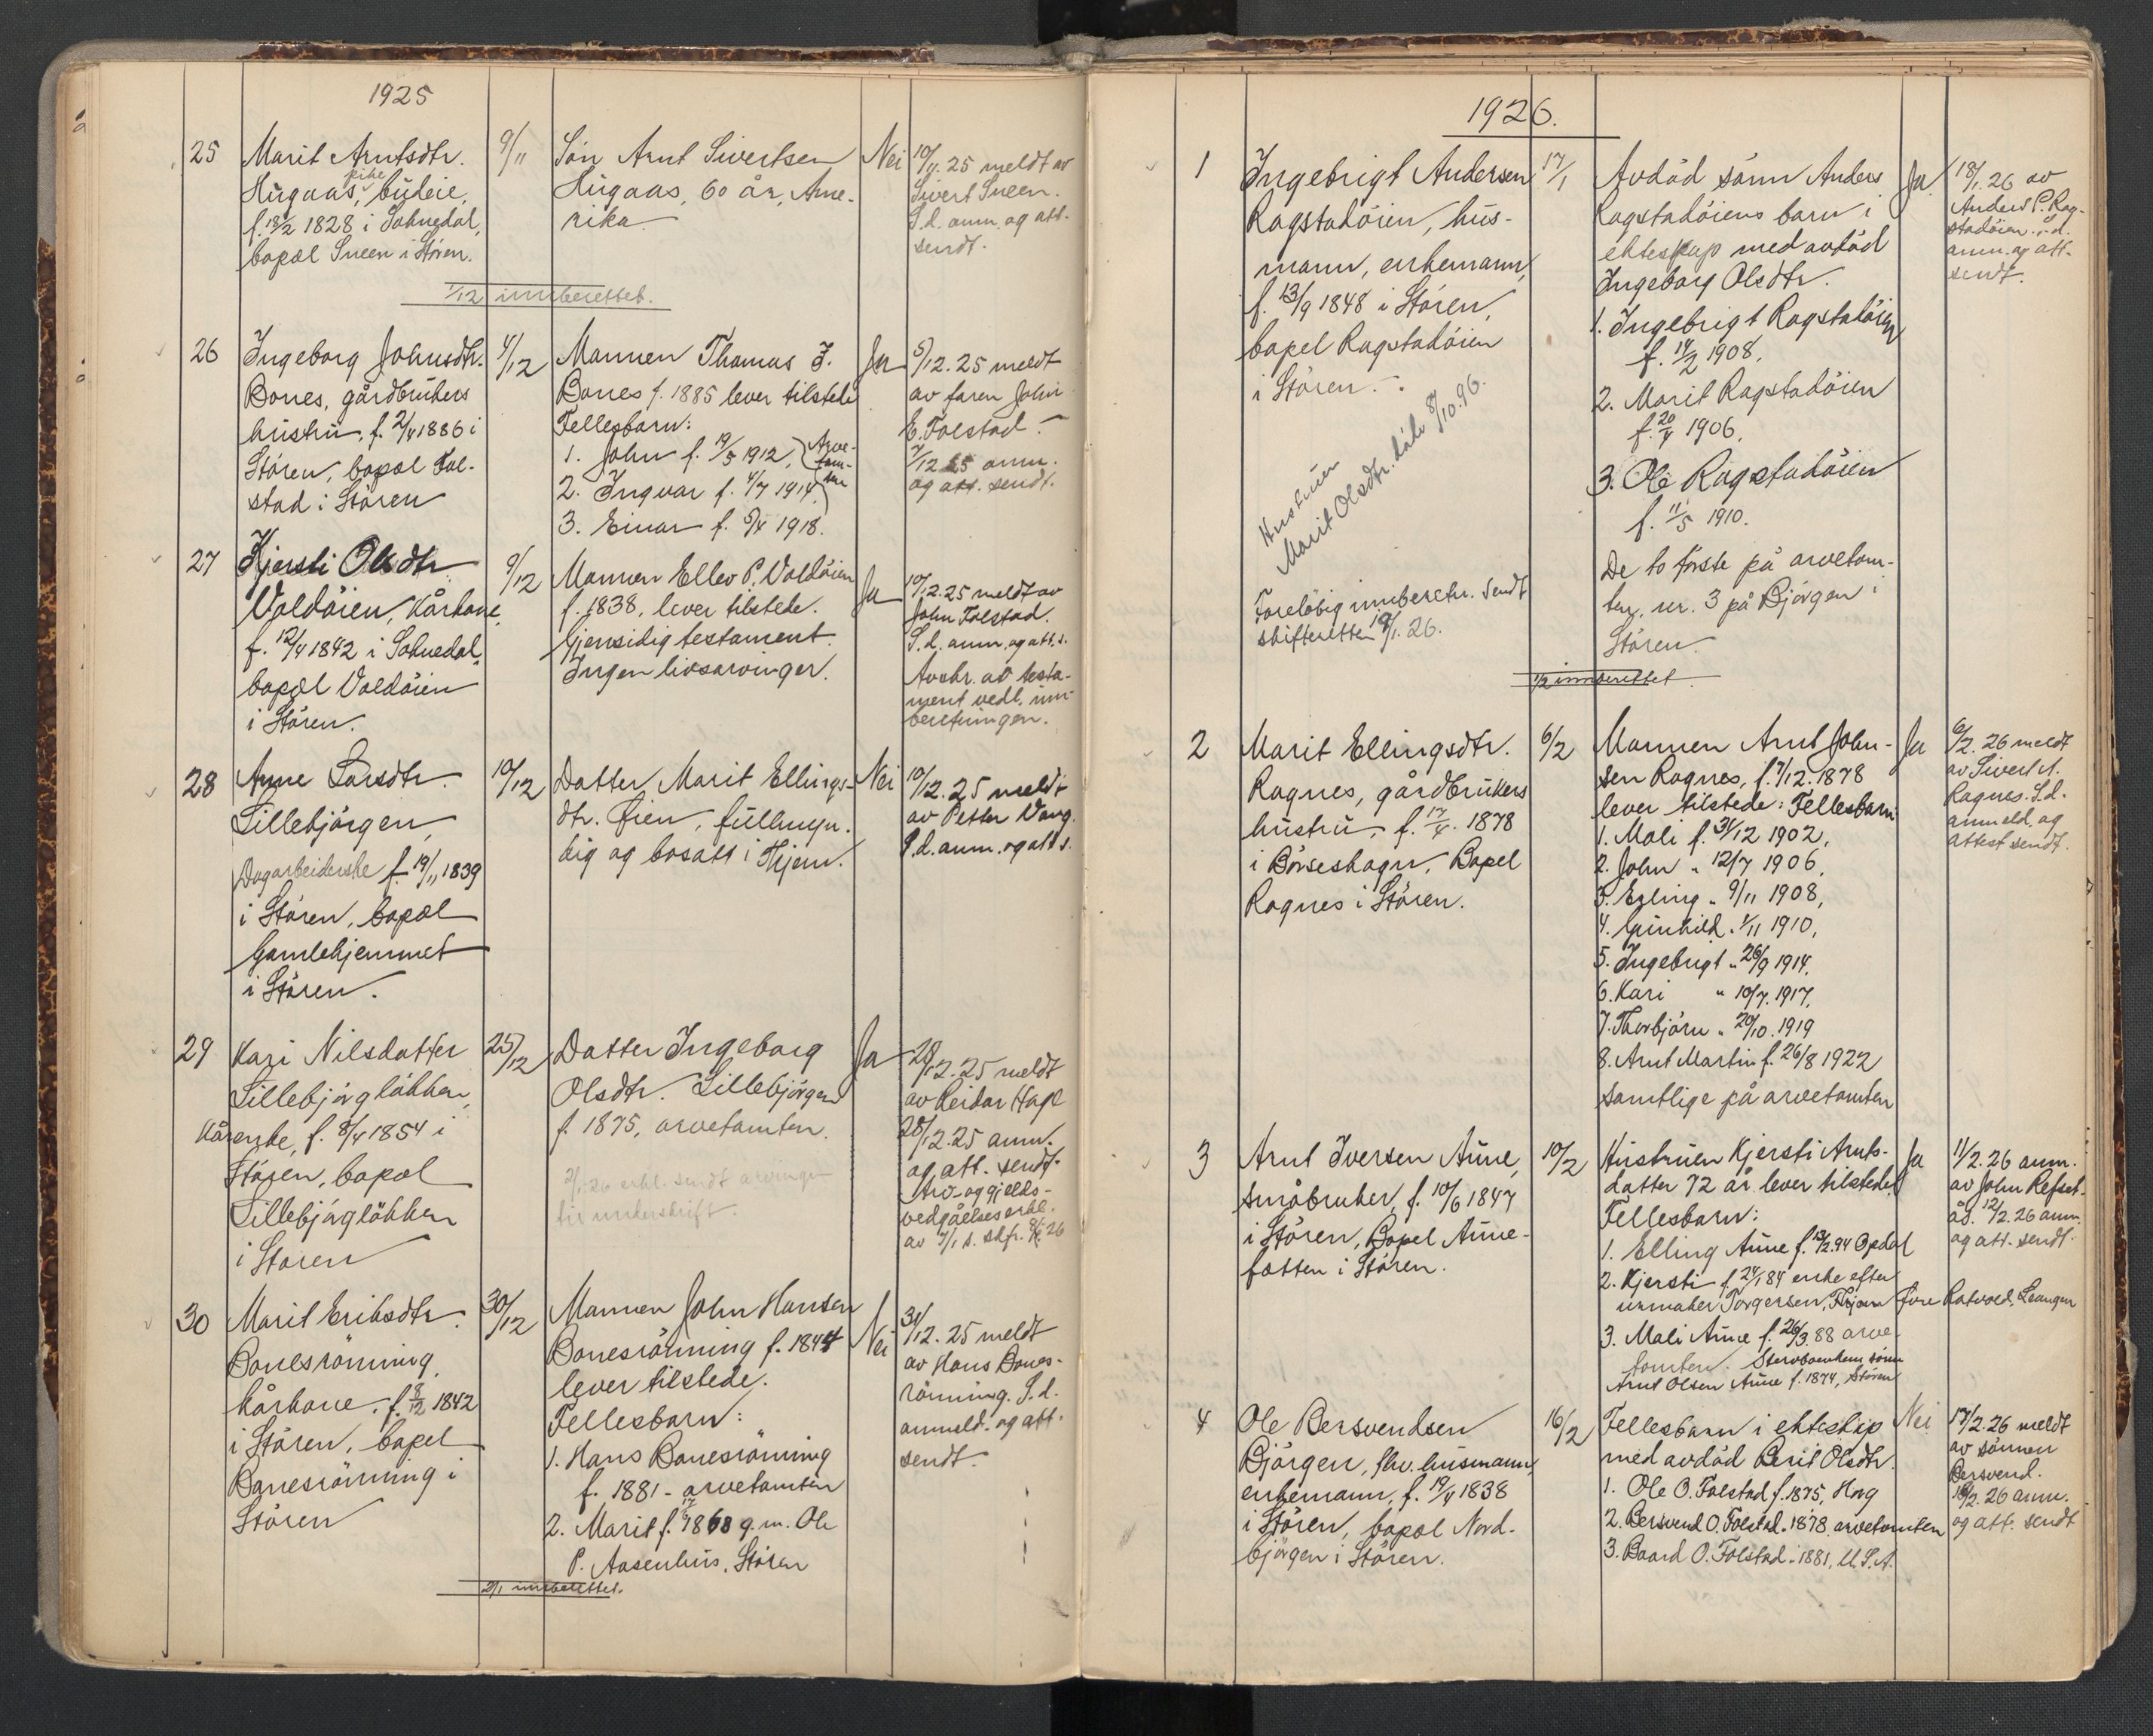 1925
25
Marit Arntsdtr.
pike
Hugaas, budeie,
f. 18/2 1828 i Soknedal,
bopæl Sneen i Stören.
9/11
Sön Arnt Sivertsen
Hugaas, 60 år, Ame-
rika
Nei
10/11. 25 meldt av
Sivert Sneen.
S.d. anm. og att.
sendt.
1/12 innberettet.
26
Ingeborg Johnsdtr.
Bones, gårdbrukers
hustru, f. 2/4 1886 i
Stören, bopæl Fol-
stad i Stören
4/12
Mannen Thomas J.
Bones f. 1885 lever tilstede
Fellesbarn:
1. John f. 19/5 1912,
2. Ingvar f. 4/7 1914,
Arve-
tom-
ten
3. Einar f. 5/4 1918.
Ja
5/12. 25 meldt
av faren John
E. Folstad.
7/12 25 anm.
og att. sendt.
27
Kjersti Olsdtr
Voldöien, kårkone,
f. 12/4 1842 i Soknedal,
bopæl Voldöien
i Stören.
9/12
Mannen Ellev P. Voldöien
f. 1838, lever tilstede.
Gjensidig testament.
Ingen livsarvinger.
Ja
10/12. 25 meldt av
John Folstad.
S.d. anm. og att. s.
Avskr. av testa-
ment vedl. inn-
beretningen.
28
Anne Larsdtr.
Lillebjörgen,
Dagarbeiderske f. 19/11 1839
i Stören, bopæl
Gamlehjemmet
i Stören.
10/12
Datter Marit Ellings-
dtr. Öien, fullmyn-
dig og bosatt i Hjem.
Nei
10/12. 25 meldt
av Petter Vang.
S.d. anm. og att s.
29
Kari Nilsdatter
Lillebjörgløkken,
Kårenke, f. 8/4 1854 i
Stören, bopæl
Lillebjörgløkken
i Stören
25/12
Datter Ingeborg
Olsdtr. Lillebjörgen
f. 1875, arvetomten.
2/1 26 erkl. sendt arvingen
til underskrift.
Ja
28/12. 25 meldt
av Reidar Hage
28/12. 25 anm.
og att. sendt.
Arv- og gjelds-
vedgåelseserkl.
av 7/1 s. skfr. 8/1 26
30
Marit Eriksdtr.
Bonesrönning,
kårkone, f. 8/12 1842
i Stören, bopæl
Bonesrönning i
Stören
30/12
Mannen John Hansen
Bonesrönning f. 1844
lever tilstede.
Fellesbarn:
1. Hans Bonesrönning
f. 1881 - arvetomten
2. Marit f. 1868 g. m. Ole
P. Aasenhus, Stören
Nei
31/12. 25 meldt
av Hans Bones-
rönning. S.d.
anmeld. og att.
sendt.
2/1 innberettet.
1926.
1
Ingebrigt Andersen
Rogstadöien, hus-
mann, enkemann,
f. 13/9 1848 i Stören,
bopel Rogstadöien
i Stören.
Hustruen
Marit Olsdtr. döde 8/10. 96.
Foreløbig innberetn. sendt
skifteretten 19/1. 26.
17/1
Avdöd sönn Anders
Rogstadöiens barn i
ekteskap med avdöd
Ingeborg Olsdtr.
1. Ingebrigt Rogstadöien
f. 14/2 1908.
2. Marit Rogstadöien
f. 20/4 1906.
3. Ole Rogstadöien
f. 11/5 1910.
De to förste på arvetom-
ten, nr. 3 på Bjørgen i
Stören.
Ja
18/1. 26 av
Anders P. Rog-
stadöien. s.d.
anm. og att.
sendt.
1/2 innberettet
2
Marit Ellingsdtr.
Rognes, gårdbrukers
hustru, f. 17/4. 1878
i Börseskogn, Bopel
Rognes i Stören.
6/2
Mannen Arnt John-
sen Rognes, f. 7/12. 1878
lever tilstede: Fellesbarn
1. Mali f. 31/12 1902,
2. John " 12/7 1906,
3. Erling " 9/11 1908,
4. Gunhild " 1/11 1910,
5. Ingebrigt " 26/9 1914,
6. Kari " 10/7. 1917,
7. Thorbjörn " 20/10. 1919
8. Arnt Martin f. 26/8 1922
samtlige på arvetomten
Ja
6/2. 26 meldt
av Sivert A.
Rognes. S.d.
anmeld. og
attest sendt.
3
Arnt Iversen Aune,
småbruker, f. 10/6 1847
i Stören, Bopel Aune-
fotten i Stören.
10/2
Hustruen Kjersti Arnts-
datter 72 år lever tilstede.
Fellesbarn:
1. Elling Aune f. 13/2. 94 Opdal
2. Kjersti f. 24/1 84 enke efter
urmaker Torgersen, Hjem Øvre Rotvold, Leangen
3. Mali Aune f. 26/3 88 arve-
tomten.
Arnt Olsen Aune f. 1874, Stören
Ja
11/2. 26 anm.
av John Refset-
ås. 12/2. 26 anm.
og att. sendt.
4
Ole Bersvendsen
Bjørgen, fhv. husmann,
enkemann, f. 19/4 1838
i Stören, bopæl Nord-
bjørgen i Stören.
16/2
Fellesbarn i ekteskap
med avdöd Berit Olsdtr.
1. Ole O. Folstad f. 1875, Horg
2. Bersvend O. Folstad " 1878, arvetomten
3. Baard O. Folstad " 1881, U.S.A.
Nei
17/2. 26 meldt
av sönnen
Bersvend.
18/2. 26 anm.
og att. sendt